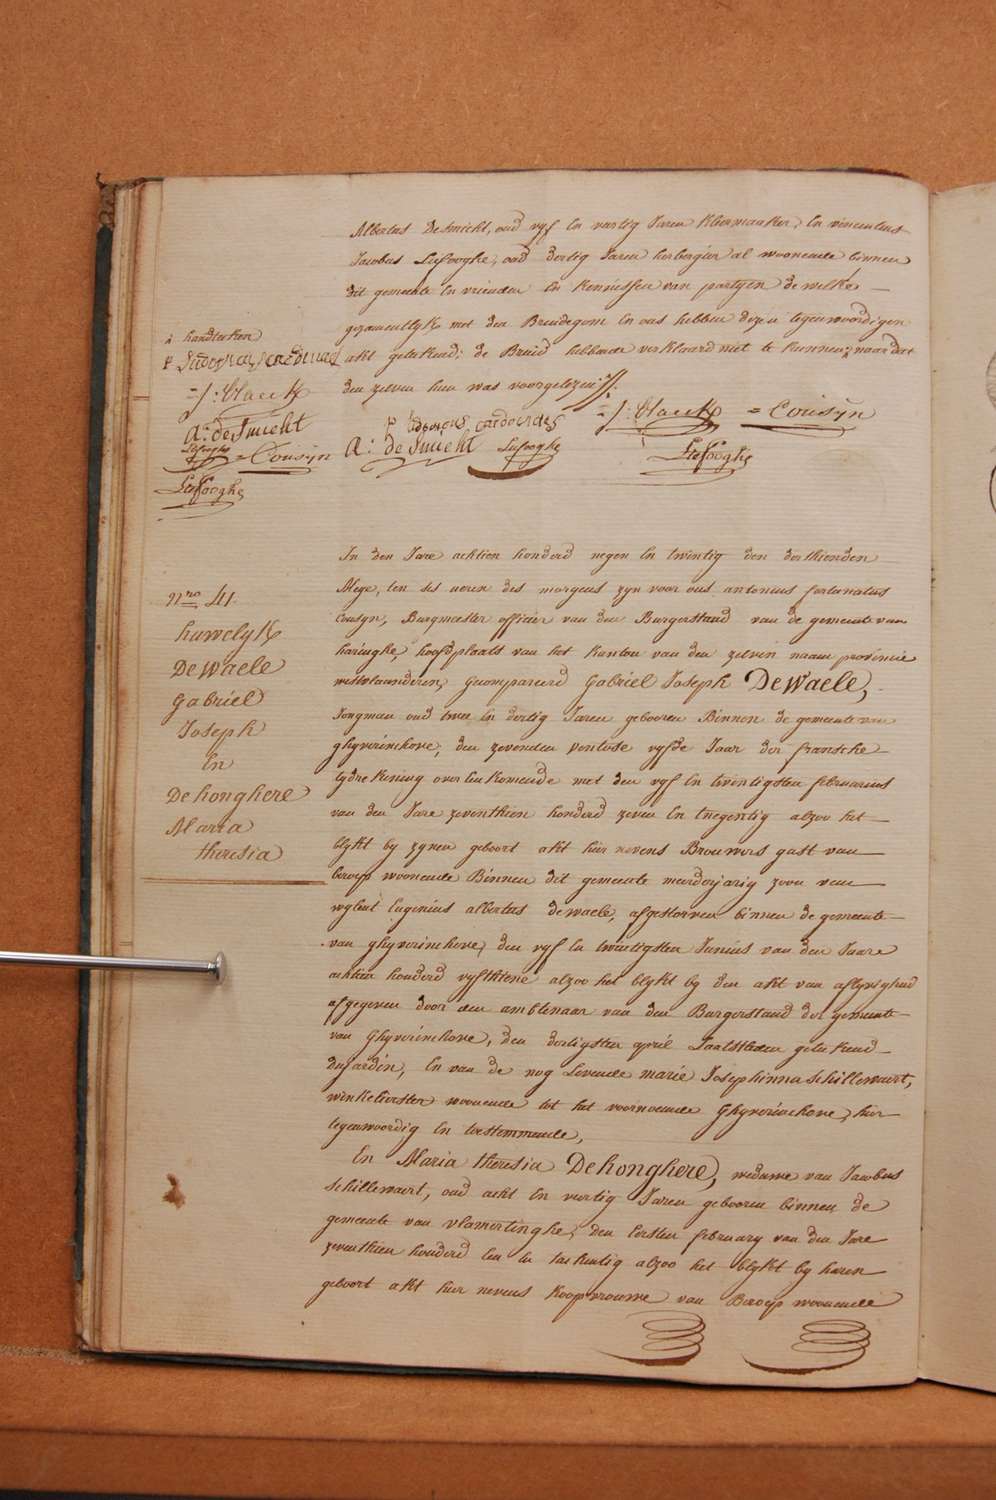 Albertus DeSmicht, oud vyf En veertig Jaren kleermaaker, En vincentius
Jacobus Liefooghe, oud dertig Jaren herbergier al woonende binnen
dit gemeente En vrienden En kennissen van partyen de welke
gezamentlyk met den Bruidegom En ons hebben dezen tegenwoordigen
akt geteekend; de Bruid hebbende verklaard niet te kunnen; naar dat
den zelven hun was voorgelezen ./.
=J: Clauk = Cousÿn
A: deSmicht Liefooghe
Liefooghe
handteeken
=J: Clauk
A: deSmicht
Liefooghe = Cousÿn
Liefooghe
In den Jare achtien honderd negen En twintig den derthienden
Meye, ten ses ueren des morgens zyn voor ons antonius fortunatus
Cousyn, Burgmeester officier van den Burgerstand van de gemeente van
haringhe, hoofdplaats van het kanton van den zelven naam provincie
westvlaanderen, Gecompareerd Gabriël Joseph DeWaele,
Jongman oud twee En dertig Jaren gebooren Binnen de gemeente van
ghyverinchove, den zevenden ventose vyfde Jaar der fransche
tydrekening over Eenkomende met den vyf En twintigsten februarius
van den Jare zeventhien honderd zeven En tnegentig alzoo het
blykt by zynen geboort akt hier nevens Brouwers gast van
beroep wooneude Binnen dit gemeente meerderjarig zoon van
wylent Eugenius albertus dewaele, afgestorven binnen de gemeente
van ghyverinchove, den vyf En twintigsten Junius van den Jaare
achtien honderd vyfthiene alzoo het blykt by den akt van aflyvighud
afgegeven door den amblenaar van den Burgerstand der gemeente
van Ghyverinchove, den dertigsten april Laatstleden geteekend
dujardin, En van de nog Levende marie Josephinna Schillewaert,
winkelierster wooneude tot het voornoemde Ghyverinchove, hier
tegenwoordig En toestemmende,
En Maria theresia Dehonghere, weduwe van Jacobus
Schillewaert, oud acht En veertig Jaren gebooren binnen de
gemeente van vlamertinghe, den Eersten february van den Jare
zeventhien honderd Een En tachentig alzoo het blykt by haren
geboort akt hier nevens koopvrouwe van Beroep wooneude
Nro 41
huwelyk
DeWaele
Gabriël
Joseph
En
Dehonghere
Maria
theresia